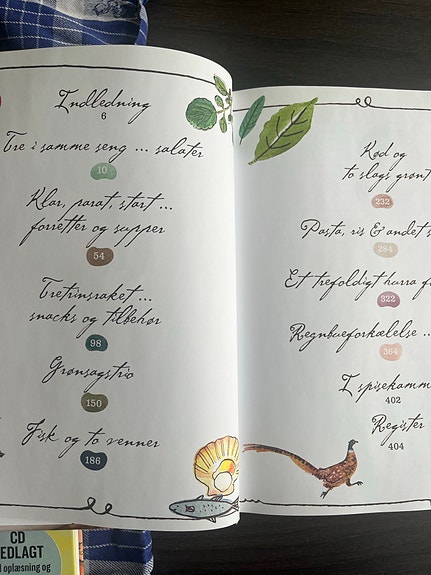 Indledning
6
Tre i samme seng ... salater
10
Klar, parat, start ...
forretter og supper
54
Tretrinsraket ...
snacks og tilbehør
98
Grønsagstrio
150
Fisk og to venner
186
Kød og
to slags grønt
232
Pasta, ris & andet
284
Et trefoldigt hurra
322
Regnbueforkælelse ...
364
I spisekamm
402
Register
404
CD
EDLAGT
oplæsning og